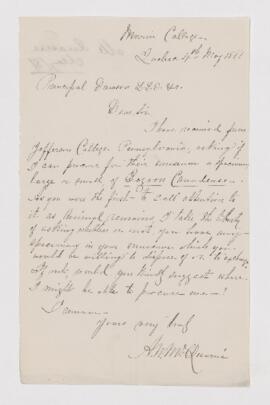 Morrin College
Quebec 4th May 1866
Principal Dawson L.L.D. &c.
Dear Sir
I have received from
Jefferson College Pennsylvania, asking if
I can procure for their museum a specimen
large or small of Eozoon Canadense.
As you were the first to call attention to
it as Animal remains I take the liberty
of asking whether or not you have any
specimens in your museum which you
would be willing to dispose of or to exchange
If not, would you kindly suggest where
I might be able to procure one?
I remain
Yours very truly